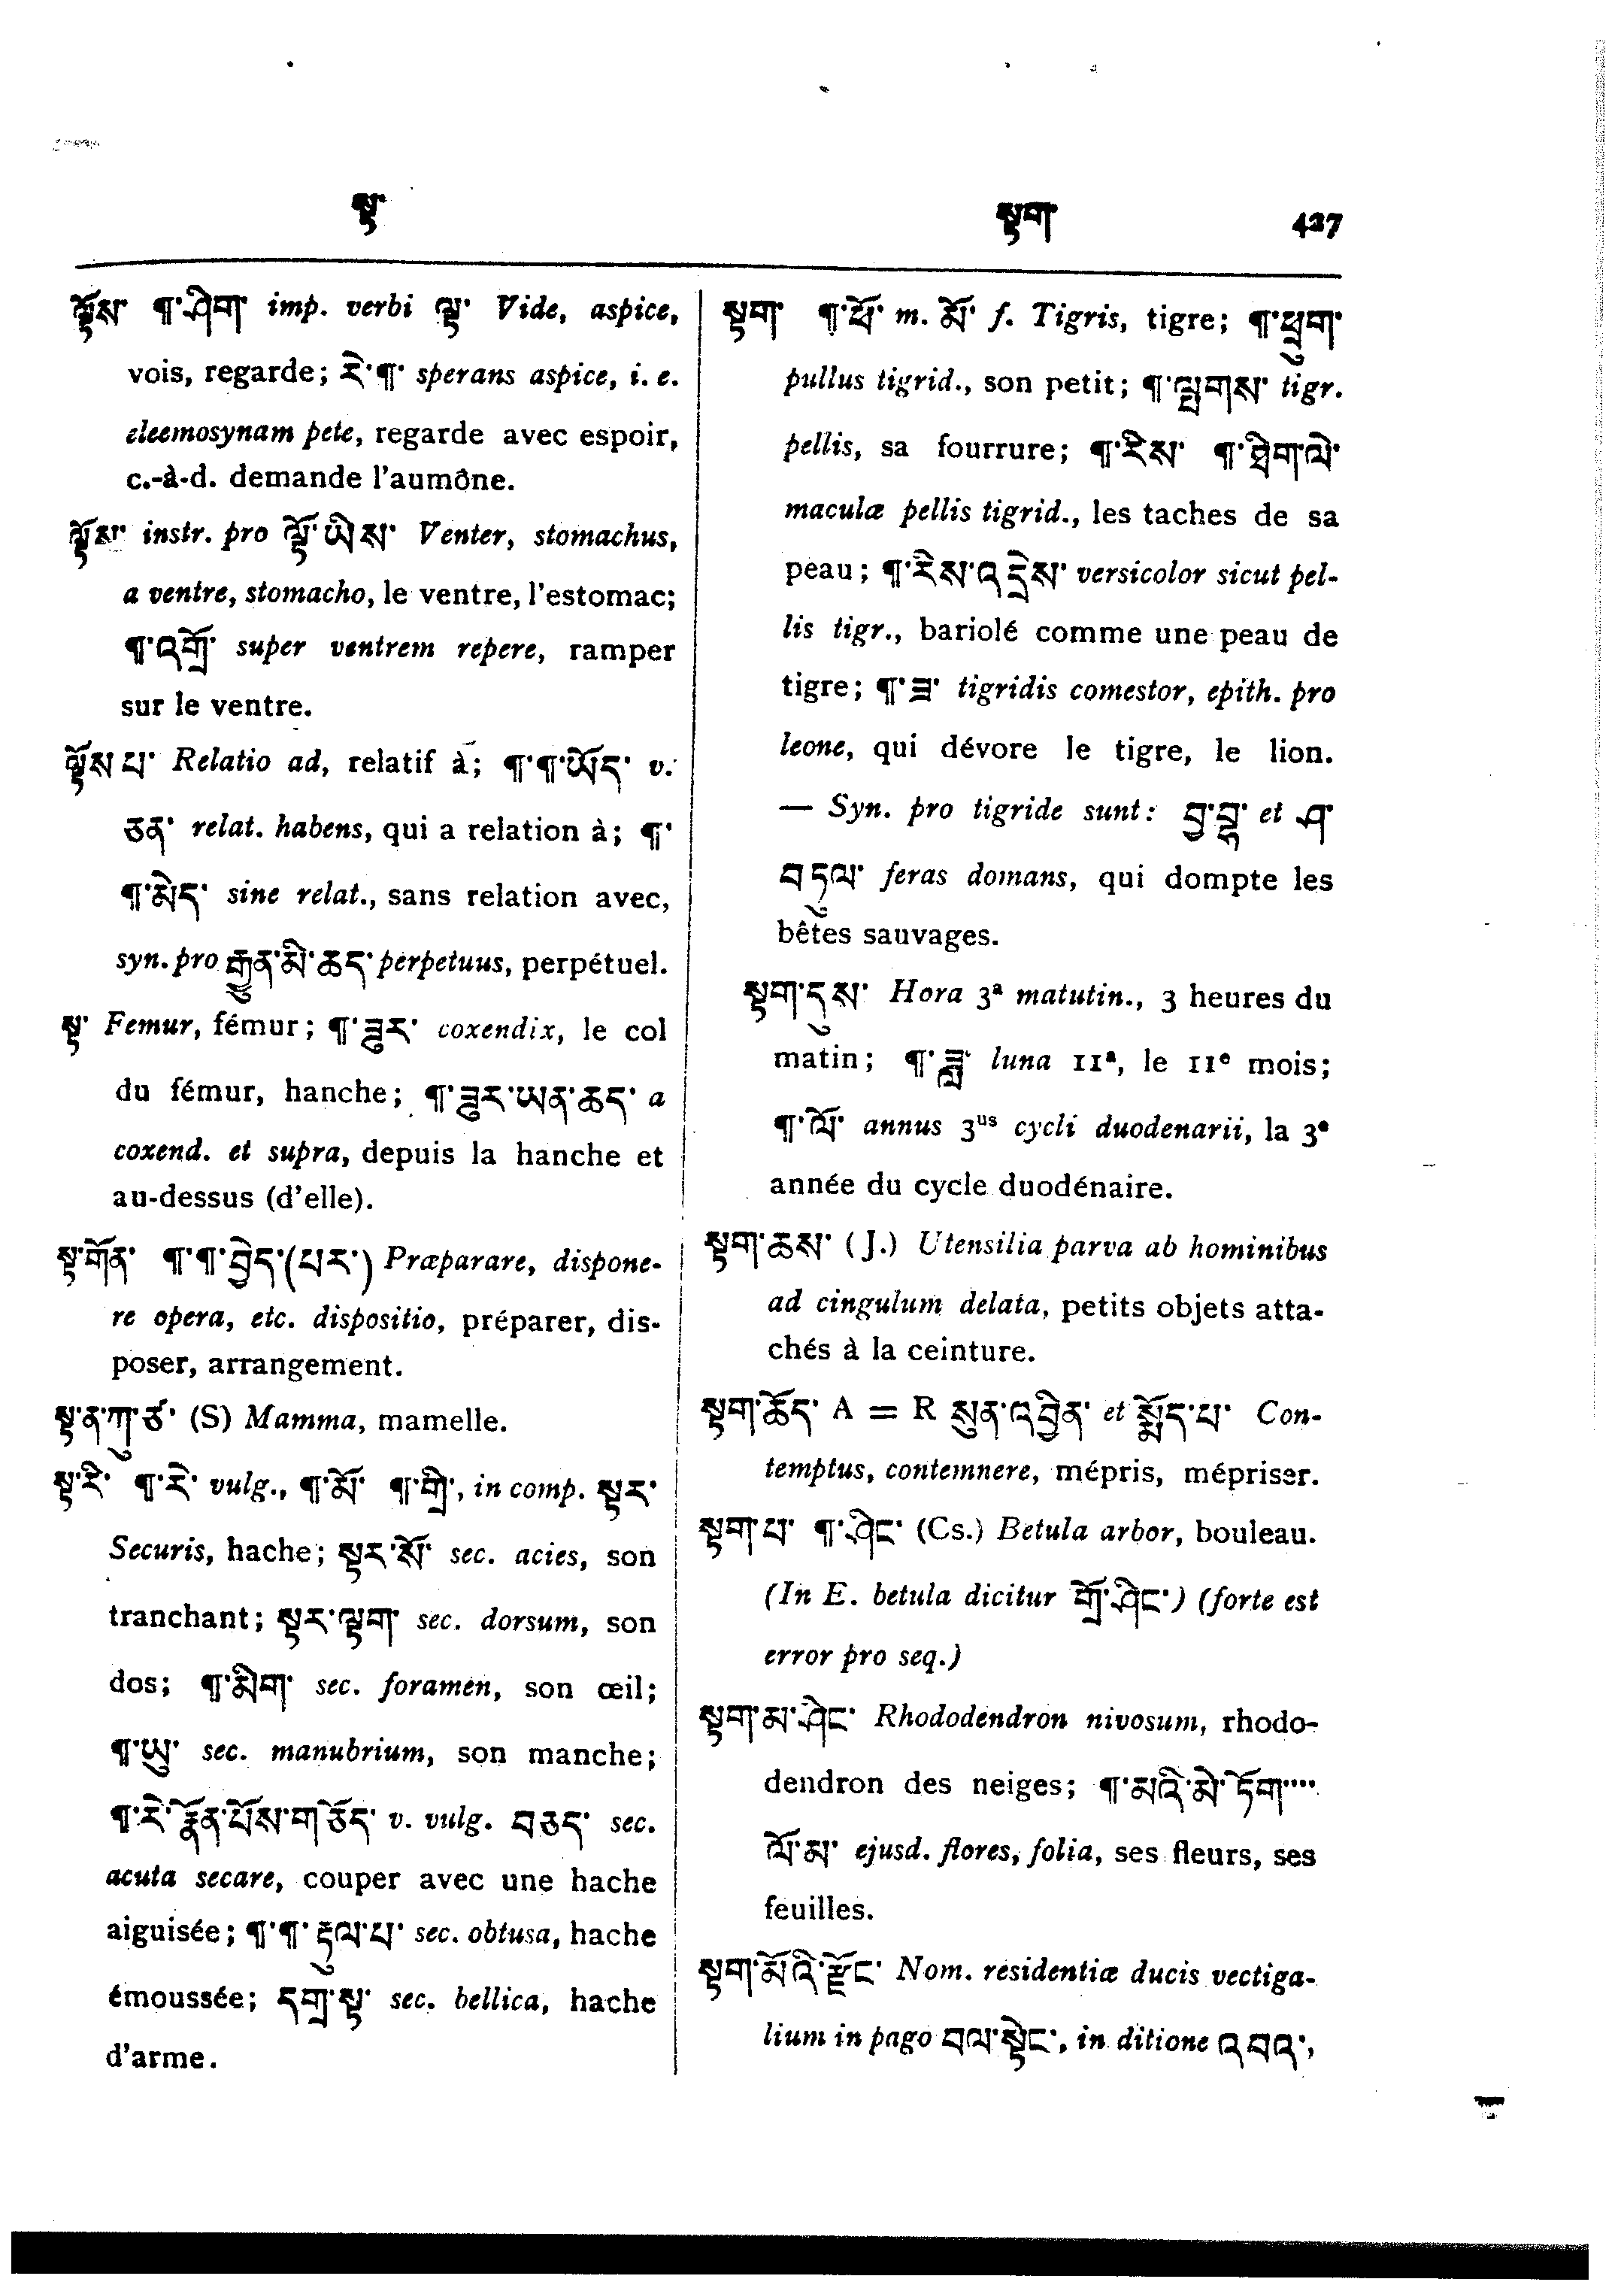 སྟ་
སྟག་ 427
ལྟོས་ ¶་ཤིག་ imp. verbi ལྟ་ Vide, aspice,
vois, regarde; རེ་¶་ sperans aspice, i. e.
eleemosynam pete, regarde avec espoir,
c.-à-d. demande l'aumône.
ལྟོས་ instr. pro ལྟོ་ཡིས་ Venter, stomachus,
a ventre, stomacho, le ventre, l'estomac;
¶་འགྲོ་ super ventrem repere, ramper
sur le ventre.
ལྟོས་པ་ Relatio ad, relatif à; ¶་¶་ཡོད་ v.
ཅན་ relat. habens, qui a relation à; ¶་
¶་མེད་ sine relat., sans relation avec,
syn. pro རྒྱུན་མི་ཆད་ perpetuus, perpétuel.
སྟ་ Femur, fémur; ¶་ཟུར་ coxendix, le col
du fémur, hanche; ¶་ཟུར་ཡན་ཆད་ a
coxend. et supra, depuis la hanche et
au-dessus (d'elle).
སྟ་གོན་ ¶་¶་བྱེད་(པར་) Præparare, dispone-
re opera, etc. dispositio, préparer, dis-
poser, arrangement.
སྟ་ན་ཀུ་ཙ་ (S) Mamma, mamelle.
སྟ་རི་ ¶་རེ་ vulg., ¶་མོ་ ¶་གྲི་, in comp. སྟར་
Securis, hache; སྟར་སོ་ sec. acies, son
tranchant; སྟར་ལྟག་ sec. dorsum, son
dos; ¶་མིག་ sec. foramen, son œil;
¶་ཡུ་ sec. manubrium, son manche;
¶་རེ་རྣོན་པོས་གཅོད་ v. vulg. བཅད་ sec.
acuta secare, couper avec une hache
aiguisée; ¶་¶་རྟུལ་པ་ sec. obtusa, hache
émoussée; དགྲ་སྟ་ sec. bellica, hache
d'arme.
སྟག་ ¶་ཕོ་ m. མོ་ f. Tigris, tigre; ¶་ཕྲུག་
pullus tigrid., son petit; ¶་ལྤགས་ tigr.
pellis, sa fourrure; ¶་རིས་ ¶་ཐིག་ལེ་
maculæ pellis tigrid., les taches de sa
peau; ¶་རིས་འདྲེས་ versicolor sicut pel-
lis tigr., bariolé comme une peau de
tigre; ¶་ཟ་ tigridis comestor, epith. pro
leone, qui dévore le tigre, le lion.
— Syn. pro tigride sunt: བྱ་བྷྲ་ et ཤ་
བདུལ་ feras domans, qui dompte les
bêtes sauvages.
སྟག་དུས་ Hora 3ª matutin., 3 heures du
matin; ¶་ཟླ་ luna 11ª, le 11e mois;
¶་ལོ་ annus 3us cycli duodenarii, la 3e
année du cycle duodénaire.
སྟག་ཆས་ (J.) Utensilia parva ab hominibus
ad cingulum delata, petits objets atta-
chés à la ceinture.
སྟག་ཆོད་ A = R སུན་འབྱིན་ et སྨོད་པ་ Con-
temptus, contemnere, mépris, mépriser.
སྟག་པ་ ¶་ཤིང་ (Cs.) Betula arbor, bouleau.
(In E. betula dicitur གྲོ་ཤིང་) (forte est
error pro seq.)
སྟག་མ་ཤིང་ Rhododendron nivosum, rhodo-
dendron des neiges; ¶་མའི་མེ་ཏོག་...
ལོ་མ་ ejusd. flores, folia, ses fleurs, ses
feuilles.
སྟག་མོའི་རྫོང་ Nom. residentiæ ducis vectiga-
lium in pago བལ་སྟེང་, in ditione འབའ་,